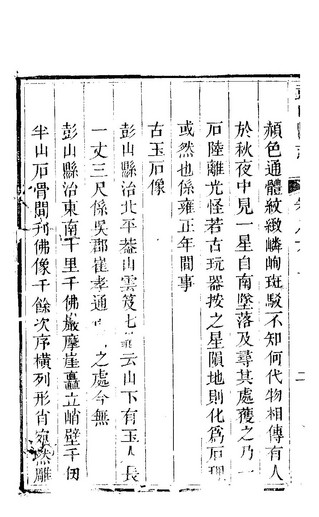 顏色通體紋緻嶙峋斑駁不知何代物相傳有人
於秋夜中見一星自南墜落及尋其處獲之乃一
石陸離光怪若古玩器按之星隕地則化爲石理
或然也係雍正年間事
古玉石像
彭山縣治北平葢山雲笈七籤云山下有玉人長
一丈三尺係吳郡崔孝通之處今無
彭山縣治東南十里千佛巖摩崖矗立峭壁千仞
半山石骨間刊佛像千餘次序橫列形肖宛然雕